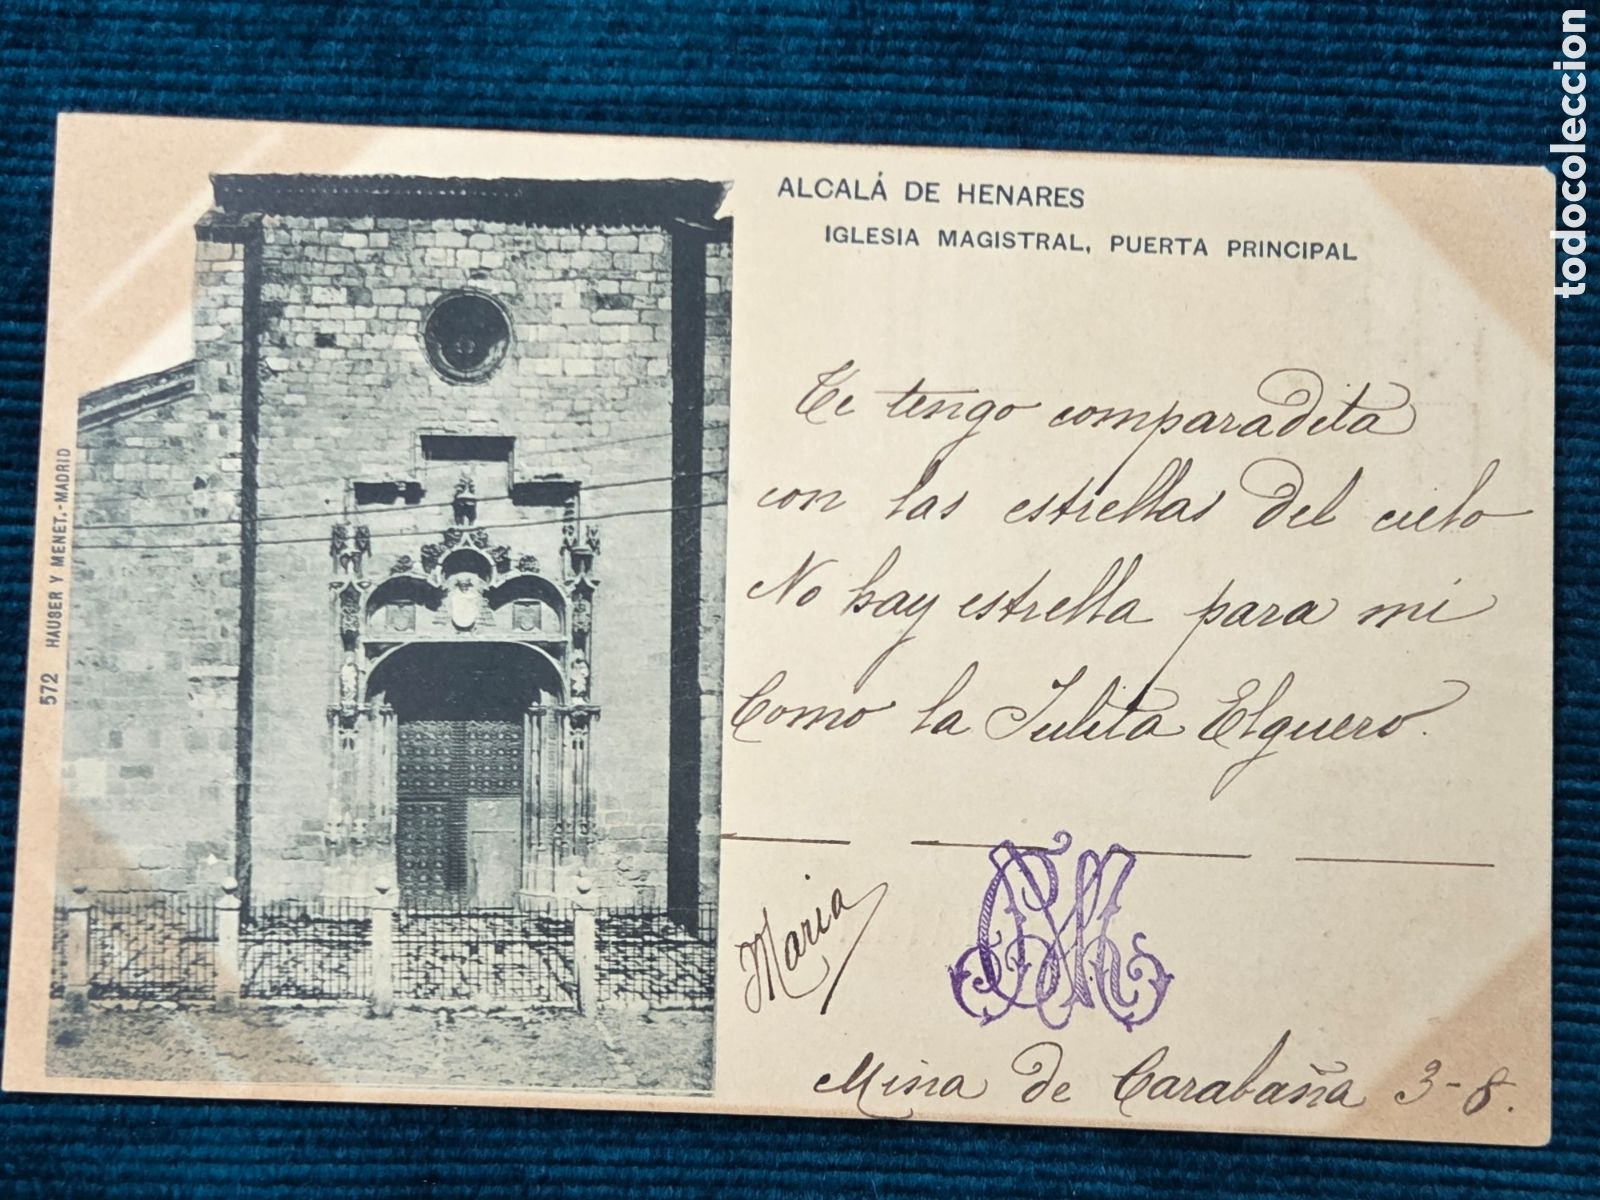 ALCALÁ DE HENARES
IGLESIA MAGISTRAL, PUERTA PRINCIPAL
Te tengo comparadita
con las estrellas del cielo
No hay estrella para mi
Como la Julita Elguero.
Maria
Mina de Carabaña 3-8.
572 HAUSER Y MENET.-MADRID
todocoleccion